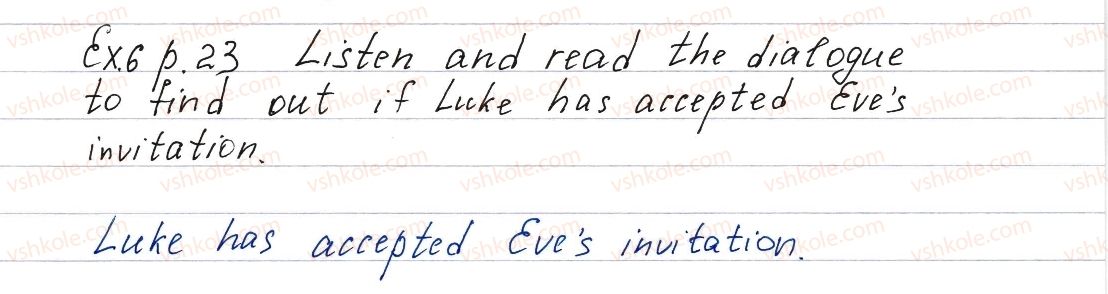 Ex.6 p.23 Listen and read the dialogue
to find out if Luke has accepted Eve's
invitation.
Luke has accepted Eve's invitation.